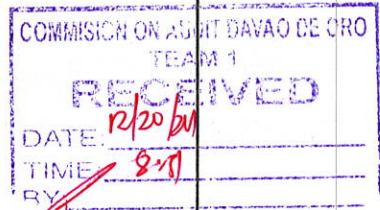 COMMISION ON AUDIT DAVAO DE ORO
TEAM 1
RECEIVED
DATE: 12/20/24
TIME:
BY